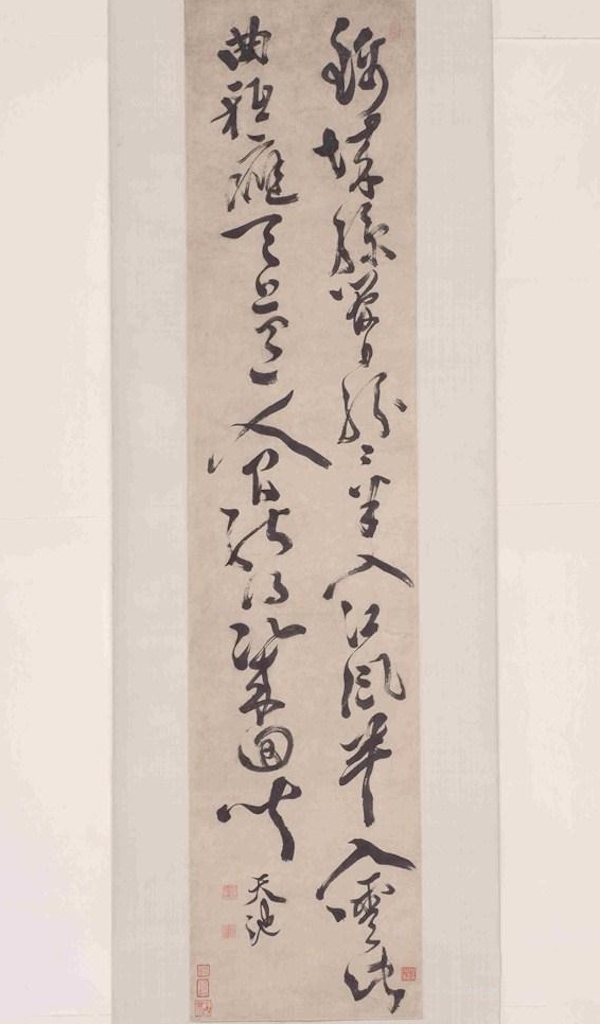 錦城絲管日紛紛半入江風半入雲此
曲秪應天上有人間能得幾回聞
天池